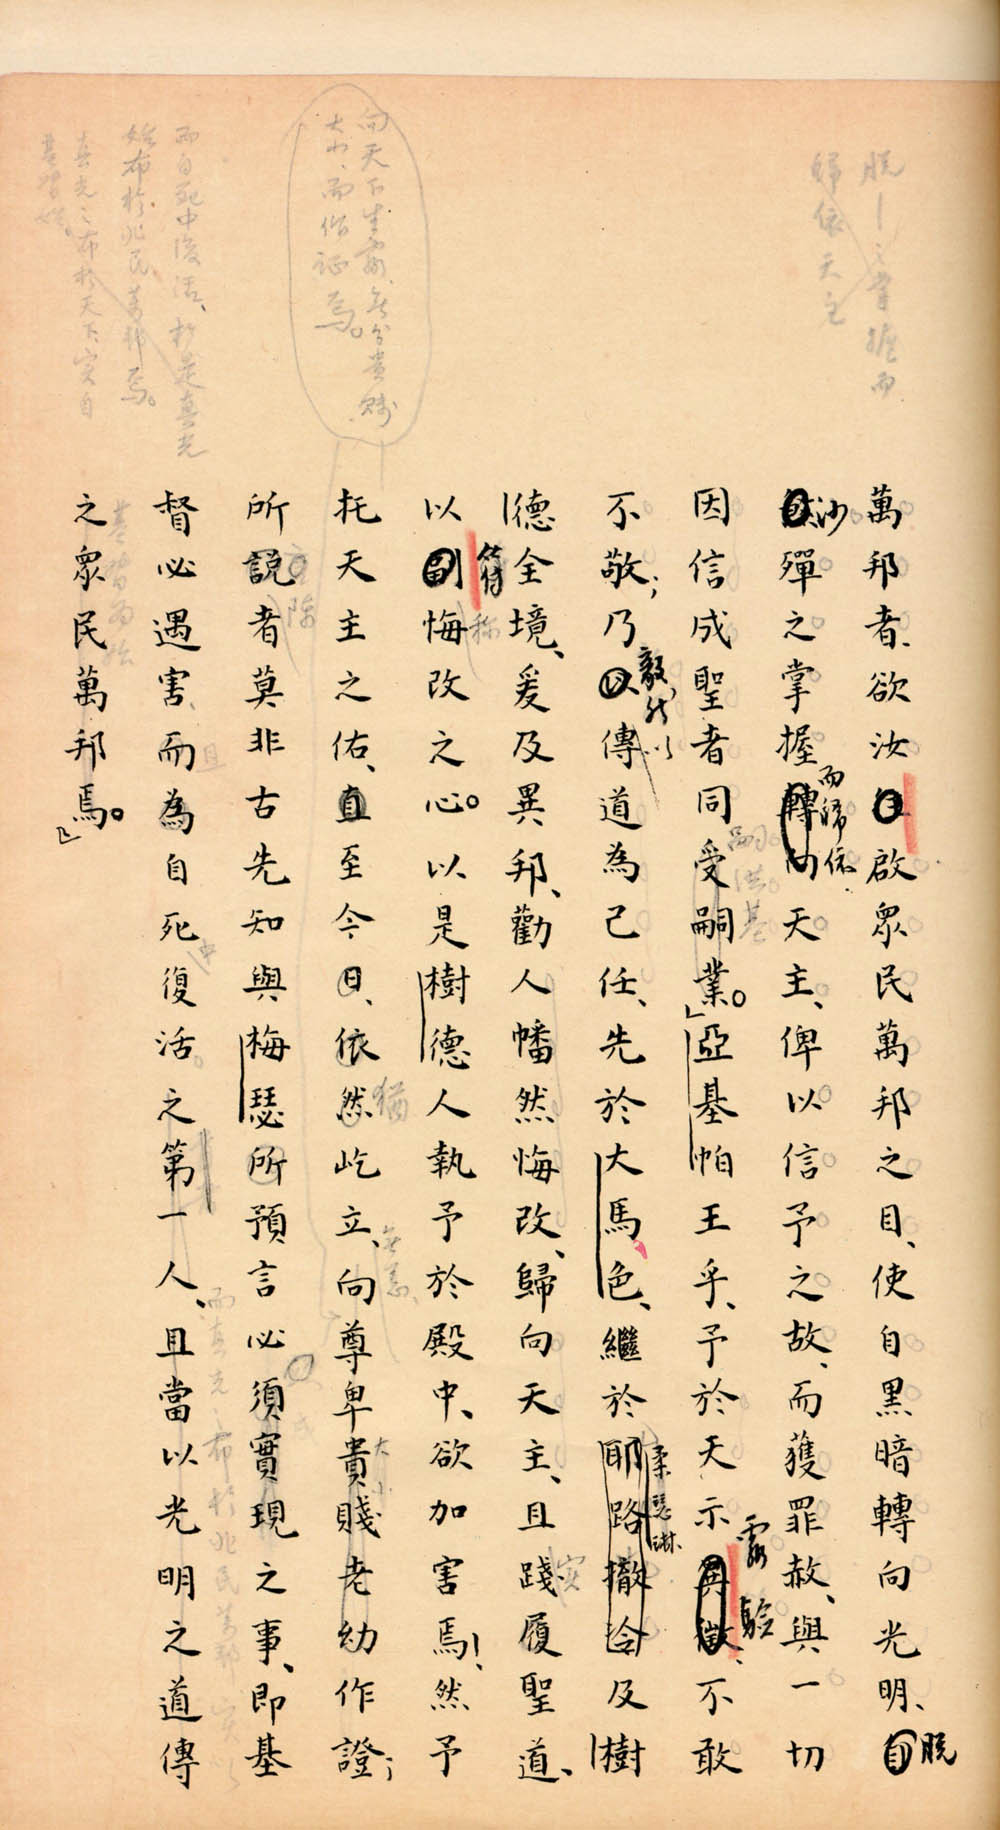 脫一之掌握而
歸依天主
向天下生靈、無分貴賤
大小、而作证焉。
而自死中復活、於是真光
始布於兆民萬邦焉。
真光之布於天下、實自
基督始。
萬邦者、欲汝啟眾民萬邦之目、使自黑暗轉向光明、自
脫
沙殫之掌握轉向天主、俾以信予之故、而獲罪赦、與一切
而歸依
因信成聖者同受嗣業。」亞基帕王乎、予於天示異徵、不敢
靈驗
不敬；乃以傳道為己任、先於大馬色、繼於耶路撒冷及樹
毅然以
柔瑟琳
德全境、爰及異邦、勸人幡然悔改、歸向天主、且踐履聖道、
实
以副悔改之心。以是樹德人執予於殿中、欲加害焉！、然予
符
称
托天主之佑、直至今日、依然屹立、向尊卑貴賤老幼作證；
猶
無恙、
大小
所說者莫非古先知與梅瑟所預言必須實現之事、即基
督必遇害、而為自死復活之第一人、且當以光明之道傳
且
中
之眾民萬邦焉。」
基督為始
而真光之布於兆民萬邦實以